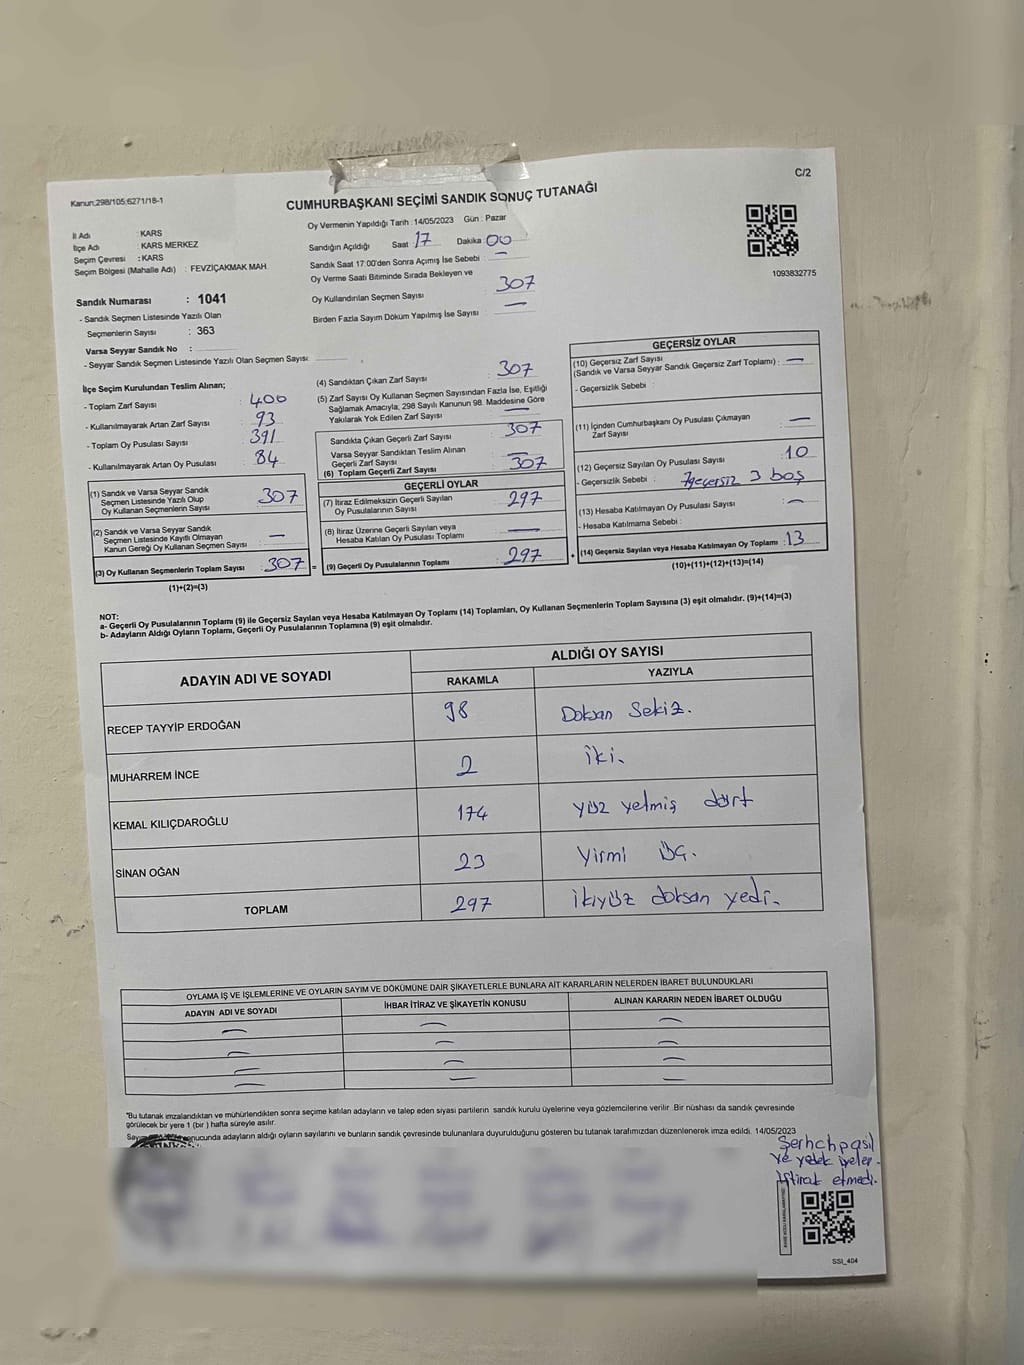 C/2
Kanun;298/105;6271/18-1
CUMHURBAŞKANI SEÇİMİ SANDIK SONUÇ TUTANAĞI
İl Adı : KARS
İlçe Adı : KARS MERKEZ
Seçim Çevresi : KARS
Seçim Bölgesi (Mahalle Adı) : FEVZİÇAKMAK MAH.
Sandık Numarası : 1041
- Sandık Seçmen Listesinde Yazılı Olan
Seçmenlerin Sayısı : 363
Varsa Seyyar Sandık No :
- Seyyar Sandık Seçmen Listesinde Yazılı Olan Seçmen Sayısı:
Oy Vermenin Yapıldığı Tarih : 14/05/2023 Gün : Pazar
Sandığın Açıldığı Saat 17 Dakika 00
Sandık Saat 17:00'den Sonra Açımış İse Sebebi : —
Oy Verme Saati Bitiminde Sırada Bekleyen ve
Oy Kullandırılan Seçmen Sayısı 307
Birden Fazla Sayım Döküm Yapılmış İse Sayısı —
1093832775
İlçe Seçim Kurulundan Teslim Alınan;
- Toplam Zarf Sayısı : 400
- Kullanılmayarak Artan Zarf Sayısı : 93
- Toplam Oy Pusulası Sayısı : 391
- Kullanılmayarak Artan Oy Pusulası : 84
(1) Sandık ve Varsa Seyyar Sandık
Seçmen Listesinde Yazılı Olup
Oy Kullanan Seçmenlerin Sayısı : 307
(2) Sandık ve Varsa Seyyar Sandık
Seçmen Listesinde Kayıtlı Olmayan
Kanun Gereği Oy Kullanan Seçmen Sayısı : —
(3) Oy Kullanan Seçmenlerin Toplam Sayısı : 307
(1)+(2)=(3)
(4) Sandıktan Çıkan Zarf Sayısı : 307
(5) Zarf Sayısı Oy Kullanan Seçmen Sayısından Fazla İse, Eşitliği
Sağlamak Amacıyla; 298 Sayılı Kanunun 98. Maddesine Göre
Yakılarak Yok Edilen Zarf Sayısı : —
Sandıkta Çıkan Geçerli Zarf Sayısı : 307
Varsa Seyyar Sandıktan Teslim Alınan
Geçerli Zarf Sayısı : —
(6) Toplam Geçerli Zarf Sayısı : 307
GEÇERLİ OYLAR
(7) İtiraz Edilmeksizin Geçerli Sayılan
Oy Pusulalarının Sayısı : 297
(8) İtiraz Üzerine Geçerli Sayılan veya
Hesaba Katılan Oy Pusulası Toplamı : —
= (9) Geçerli Oy Pusulalarının Toplamı : 297
GEÇERSİZ OYLAR
(10) Geçersiz Zarf Sayısı
(Sandık ve Varsa Seyyar Sandık Geçersiz Zarf Toplamı) : —
- Geçersizlik Sebebi :
(11) İçinden Cumhurbaşkanı Oy Pusulası Çıkmayan
Zarf Sayısı : —
(12) Geçersiz Sayılan Oy Pusulası Sayısı : 10
- Geçersizlik Sebebi : 7geçersiz 3 boş
(13) Hesaba Katılmayan Oy Pusulası Sayısı : —
- Hesaba Katılmama Sebebi :
+ (14) Geçersiz Sayılan veya Hesaba Katılmayan Oy Toplamı : 13
(10)+(11)+(12)+(13)=(14)
NOT:
a- Geçerli Oy Pusulalarının Toplamı (9) ile Geçersiz Sayılan veya Hesaba Katılmayan Oy Toplamı (14) Toplamları, Oy Kullanan Seçmenlerin Toplam Sayısına (3) eşit olmalıdır. (9)+(14)=(3)
b- Adayların Aldığı Oyların Toplamı, Geçerli Oy Pusulalarının Toplamına (9) eşit olmalıdır.
ADAYIN ADI VE SOYADI
ALDIĞI OY SAYISI
RAKAMLA YAZIYLA
RECEP TAYYİP ERDOĞAN 98 Doksan Sekiz.
MUHARREM İNCE 2 iki.
KEMAL KILIÇDAROĞLU 174 yüz yetmiş dört
SİNAN OĞAN 23 Yirmi üç.
TOPLAM 297 ikiyüz doksan yedi.
OYLAMA İŞ VE İŞLEMLERİNE VE OYLARIN SAYIM VE DÖKÜMÜNE DAİR ŞİKAYETLERLE BUNLARA AİT KARARLARIN NELERDEN İBARET BULUNDUKLARI
ADAYIN ADI VE SOYADI İHBAR İTİRAZ VE ŞİKAYETİN KONUSU ALINAN KARARIN NEDEN İBARET OLDUĞU
— — —
— — —
— — —
— — —
"Bu tutanak imzalandıktan ve mühürlendikten sonra seçime katılan adayların ve talep eden siyasi partilerin sandık kurulu üyelerine veya gözlemcilerine verilir. Bir nüshası da sandık çevresinde
görülecek bir yere 1 (bir) hafta süreyle asılır.
sonucunda adayların aldığı oyların sayılarını ve bunların sandık çevresinde bulunanlara duyurulduğunu gösteren bu tutanak tarafımızdan düzenlenerek imza edildi. 14/05/2023
ve yedek üyeler
iştirak etmedi.
SSI_404